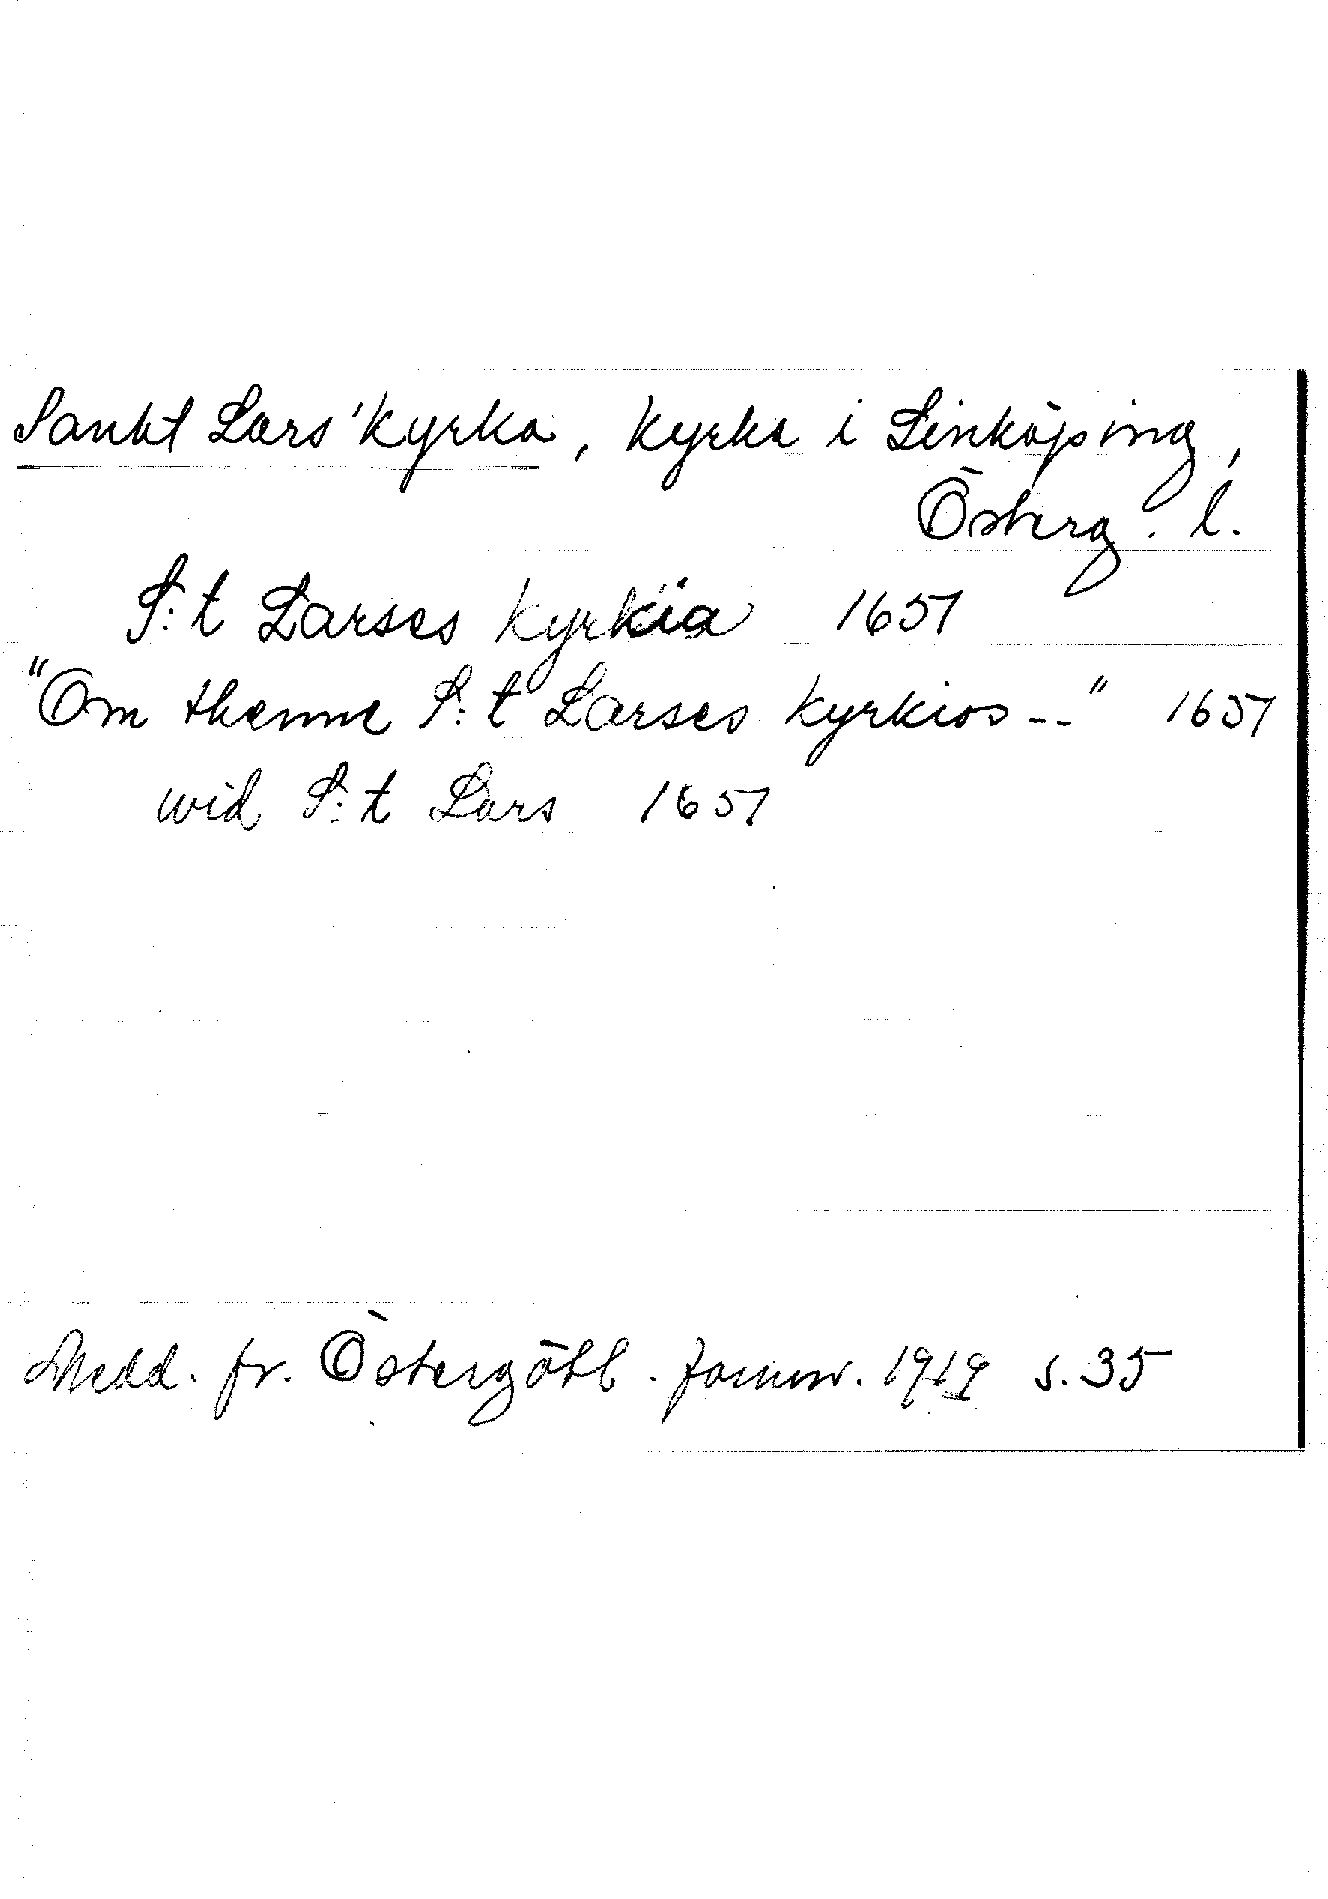 Sankt Lars' kyrka, kyrka i Linköping,
Österg. l.
S:t Larses kyrkia 1657
"Om thenne S:t Larses kyrkios --" 1657
wid S:t Lars 1657
Medd. fr. Östergötl. fornm. 1919 s. 35